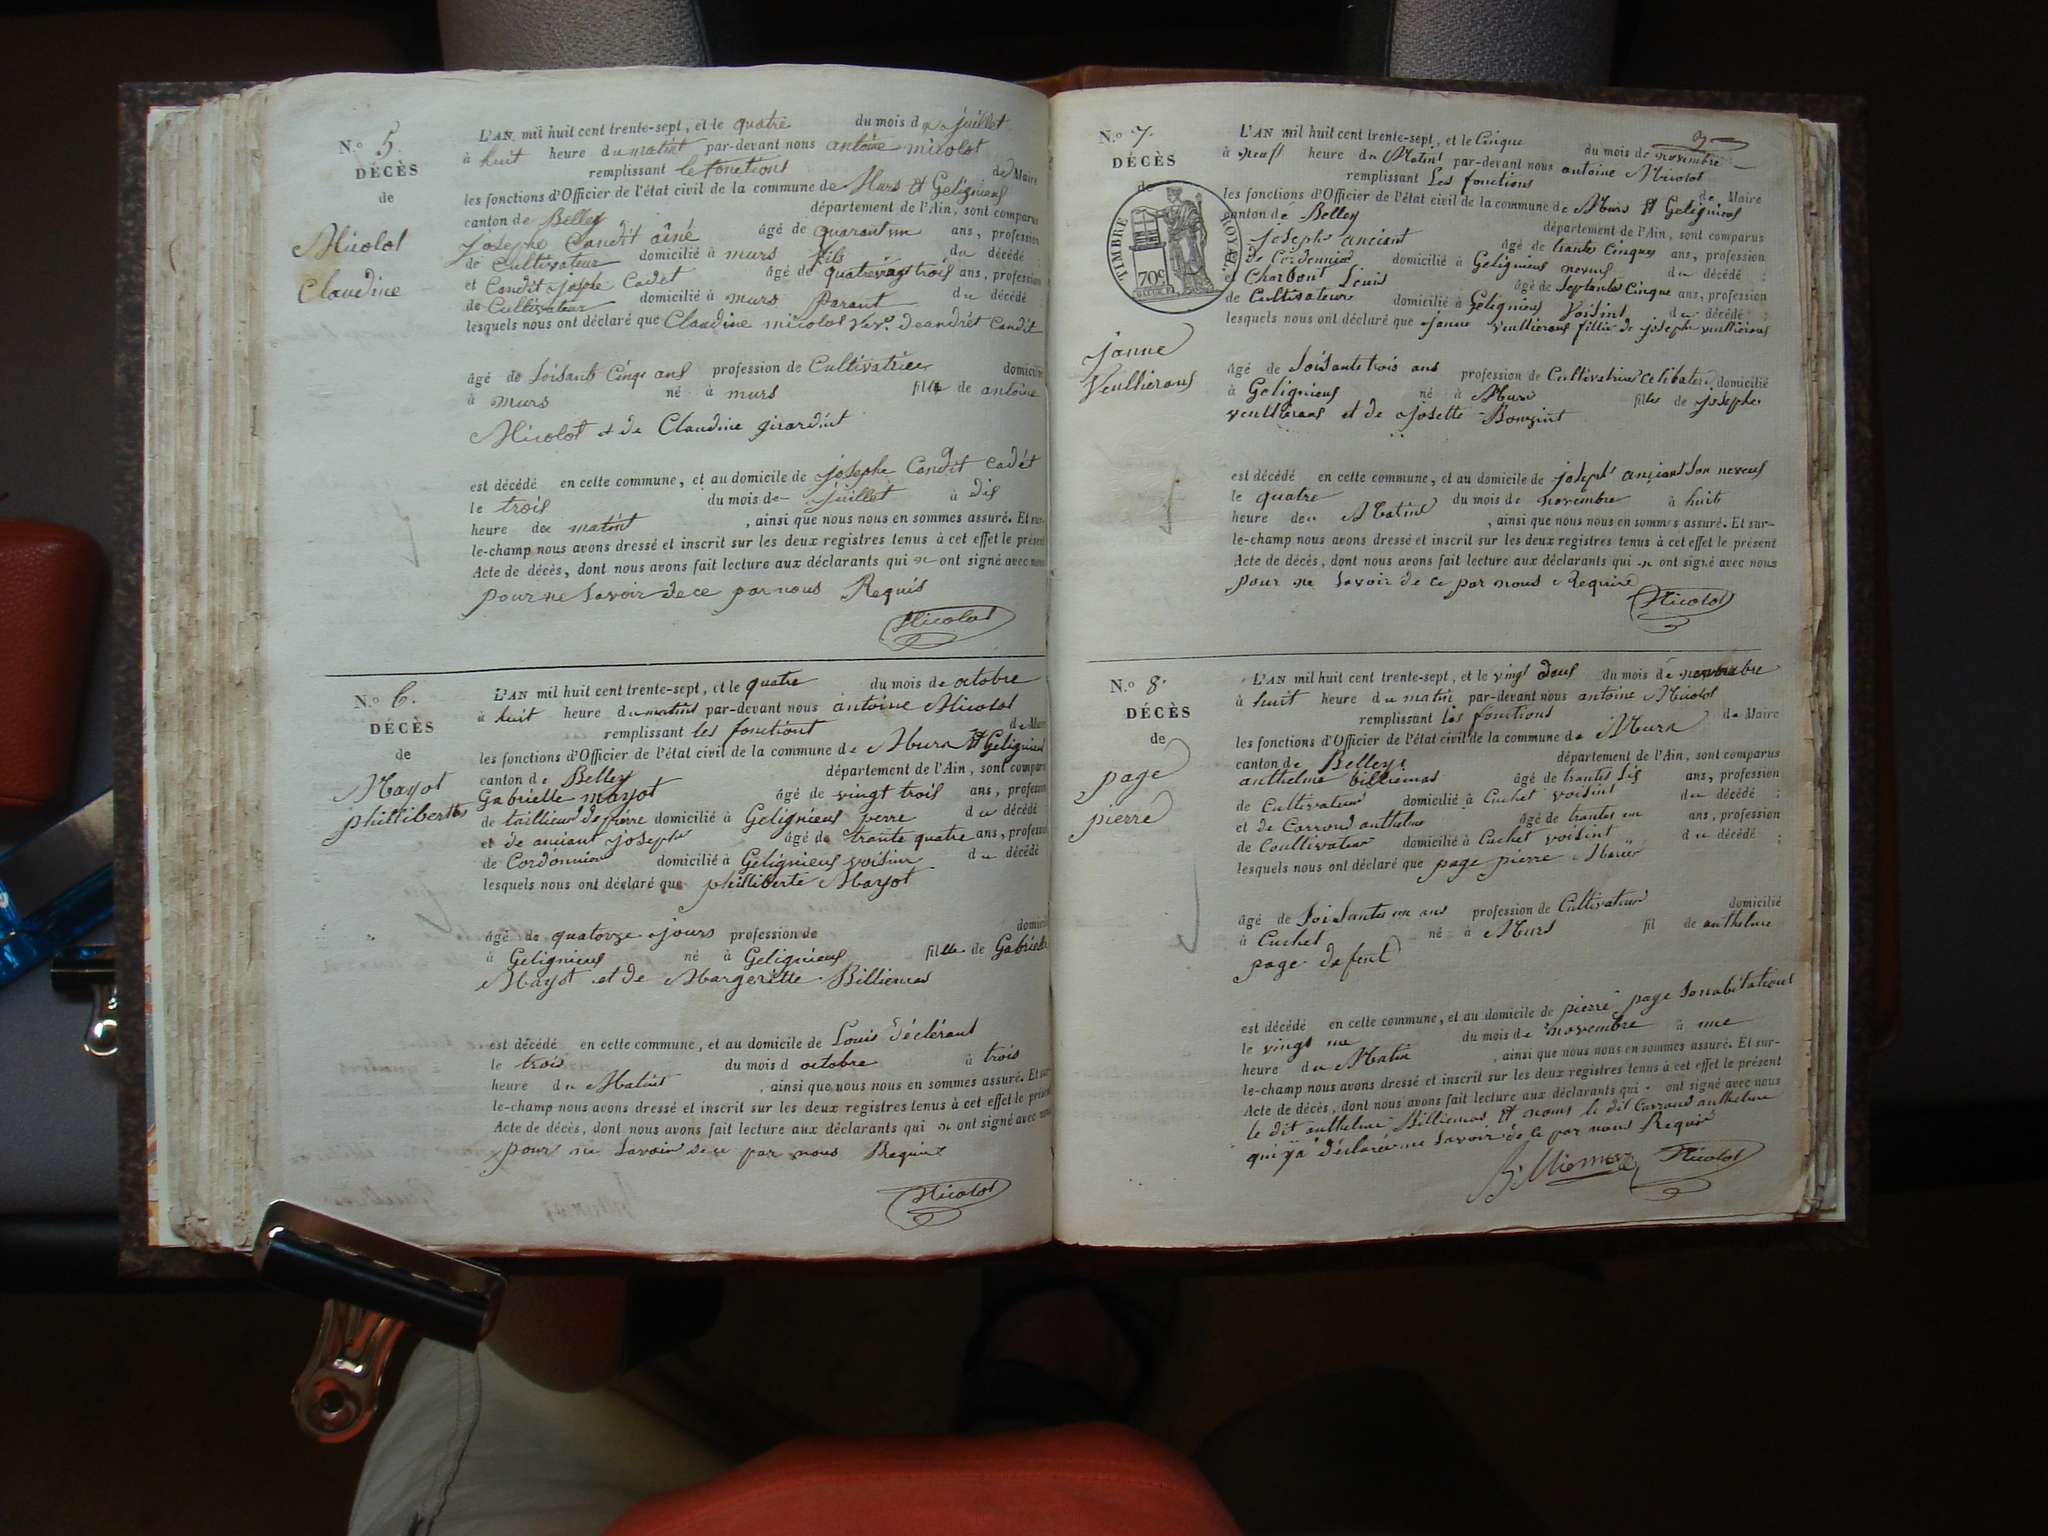 N.o 5.
DÉCÈS
de
Nicolot
Claudine
L'AN mil huit cent trente-sept, et le quatre du mois de juillet
à huit heure du matint par-devant nous antoine nicolot
remplissant le fonctions de Maire
les fonctions d'Officier de l'état civil de la commune de Murs et Gelignieus
canton de Belley département de l'Ain, sont comparus
josephe Candit aîné âgé de quarant un ans, profession
de Cultivateur domicilié à murs fils du décédé :
et Candit josphe Cadet âgé de quatrevingt trois ans, profession
de Cultivateur domicilié à murs Parant du décédé :
lesquels nous ont déclaré que Claudine nicolot Vev.e deandrét Candit
âgé de soisante Cinqe ans profession de Cultivatrice domicilié
à murs né à murs fille de antoine
Nicolot et de Claudine girardint
est décédé en cette commune, et au domicile de josephe Candit cadét
le trois du mois de juillet à dis
heure de matint , ainsi que nous nous en sommes assuré. Et sur-
le-champ nous avons dressé et inscrit sur les deux registres tenus à cet effet le présent
Acte de décès, dont nous avons fait lecture aux déclarants qui n ont signé avec nous
pour ne savoir de ce par nous Requis
Nicolot
N.o 6.
DÉCÈS
de
Mayot
phillibertte
L'AN mil huit cent trente-sept, et le quatre du mois de octobre
à huit heure du matint par-devant nous antoine Nicolot
remplissant les fonctiont de Maire
les fonctions d'Officier de l'état civil de la commune de Murs et Gelignieu
canton de Belley département de l'Ain, sont comparus
Gabrielle mayot âgé de vingt trois ans, profession
de taillieur de pierre domicilié à Gelignieus perre du décédé
et de anciant joseph âgé de trante quatre ans, profession
de Cordonnier domicilié à Gelignieus voisint du décédé
lesquels nous ont déclaré que phillibertte Mayot
âgé de quatorze jours profession de domicilié
à Gelignieus né à Gelignieus fille de Gabrielle
Mayot et de Margeritte Billiemas
est décédé en cette commune, et au domicile de Louis déclérant
le trois du mois d octobre à trois
heure du Matint , ainsi que nous nous en sommes assuré. Et sur-
le-champ nous avons dressé et inscrit sur les deux registres tenus à cet effet le présent
Acte de décès, dont nous avons fait lecture aux déclarants qui n ont signé avec nous
pour ne savoir de ce par nous Requis
Nicolot
3
N.o 7.
DÉCÈS
de
TIMBRE ROYAL
70c
janne
Veullierous
L'AN mil huit cent trente-sept, et le Cinque du mois de novembre
à neuf heure du Matint par-devant nous antoine Nicolot
remplissant Les fonctions de Maire
les fonctions d'Officier de l'état civil de la commune de Murs et Gelignieus
canton de Belley département de l'Ain, sont comparus
joseph anciant âgé de trantes cinque ans, profession
de Cordonnier domicilié à Gelignieus neveus du décédé :
et Charbont Louis âgé de septante Cinque ans, profession
de Cultivateur domicilié à Gelignieus Voisint du décédé :
lesquels nous ont déclaré que janne veullierous fillie de joseph veullierous
âgé de soisante trois ans profession de Cultivatrice celibatere domicilié
à Gelignieus né à Murs fille de josephe
veullierous et de josette Bonzint
est décédé en cette commune, et au domicile de joseph anciant son neveus
le quatre du mois de novembre à huit
heure de Matint , ainsi que nous nous en sommes assuré. Et sur-
le-champ nous avons dressé et inscrit sur les deux registres tenus à cet effet le présent
Acte de décès, dont nous avons fait lecture aux déclarants qui n ont signé avec nous
pour ne savoir de ce par nous Require
Nicolot
N.o 8.
DÉCÈS
de
page
pierre
L'AN mil huit cent trente-sept, et le vingt deus du mois de novembre
à huit heure du matin par-devant nous antoine Nicolot
remplissant les fonctions de Maire
les fonctions d'Officier de l'état civil de la commune de Murs
canton de Belley département de l'Ain, sont comparus
anthelme billiemas âgé de trantes sis ans, profession
de Cultivateur domicilié à Cuchet voisint du décédé :
et de Carroud anthelme âgé de trantes un ans, profession
de Coultivateur domicilié à Cuchet voisint du décédé :
lesquels nous ont déclaré que page pierre Mariè
âgé de soisantes un ans profession de Cultivateur domicilié
à Cuchet né à Murs fil de anthelme
page defent
est décédé en cette commune, et au domicile de pierre page sonabitationt
le vingt un du mois de novembre à une
heure du Matin , ainsi que nous nous en sommes assuré. Et sur-
le-champ nous avons dressé et inscrit sur les deux registres tenus à cet effet le présent
Acte de décès, dont nous avons fait lecture aux déclarants qui ont signé avec nous
le dit anthelme Billiemas et nomis le dit Carroud anthelme
qui ya déclarée ne savoir de le par nous Requis
Billiemaz Nicolot